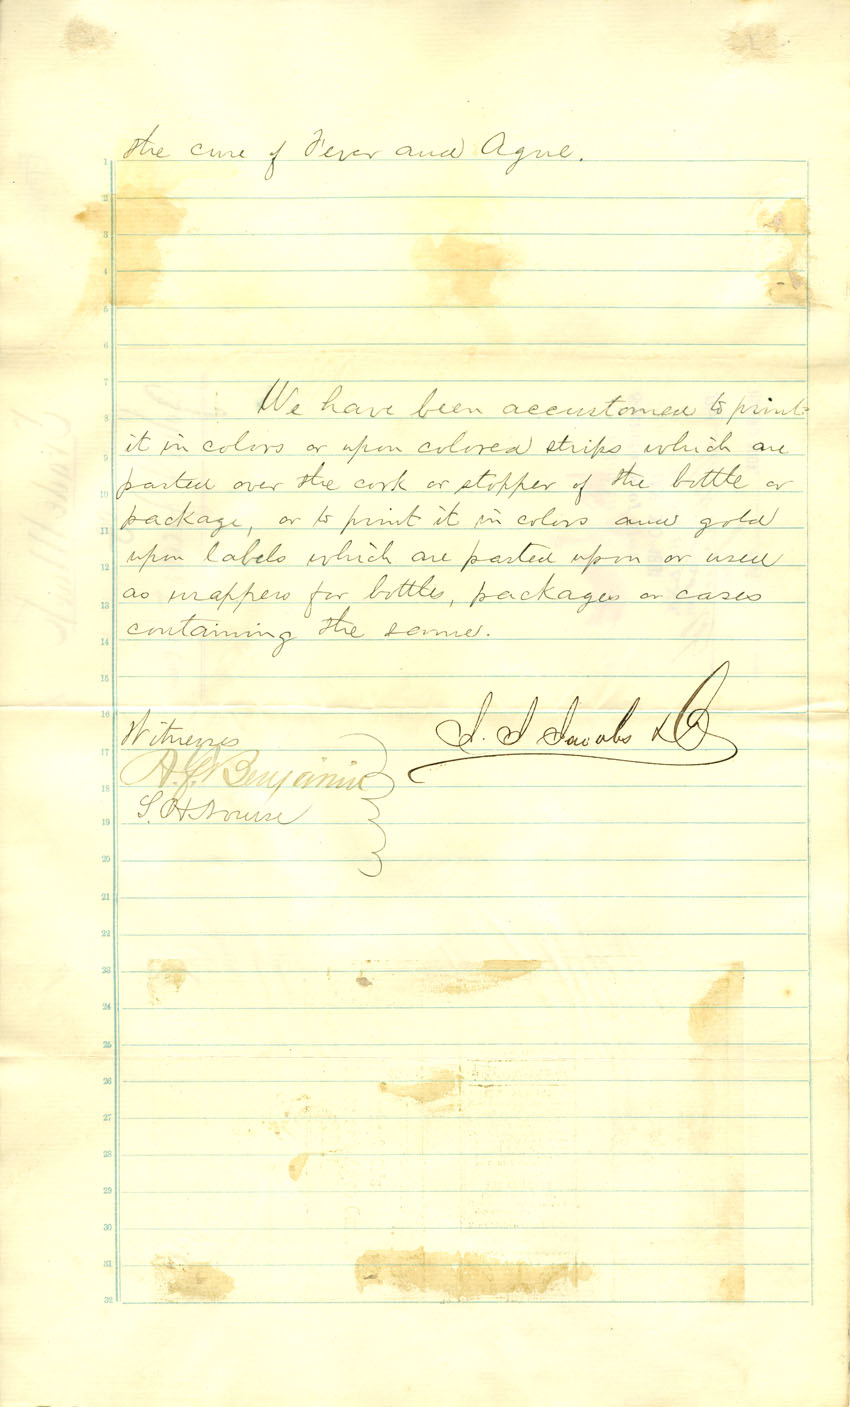 the cure of Fever and Ague.
We have been accustomed to print
it in colors or upon colored strips which are
pasted over the cork or stopper of the bottle or
package, or to print it in colors and gold
upon labels which are pasted upon or used
as wrappers for bottles, packages or cases
containing the same.
Witnesses
J. J. Jacobs & Co
A. J. Benjamin
S. H. Nourse
1
2
3
4
5
6
7
8
9
10
11
12
13
14
15
16
17
18
19
20
21
22
23
24
25
26
27
28
29
30
31
32